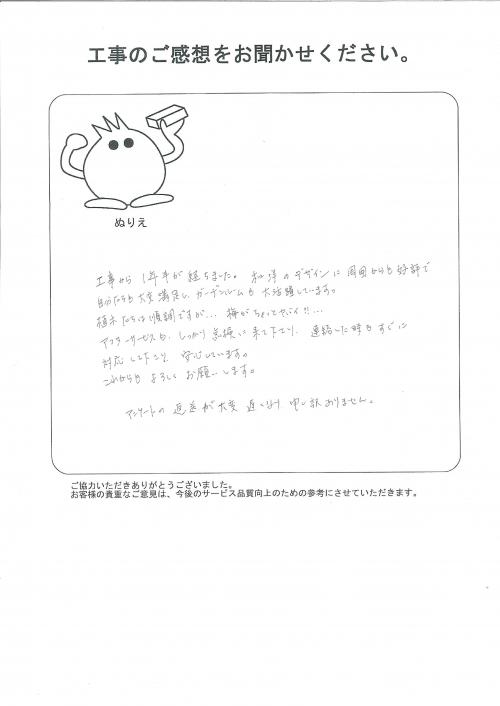 工事のご感想をお聞かせください。
ぬりえ
工事から 1年半が経ちました。和洋のデザインに周囲からも好評で
自分たちも大変満足し、ガーデンルームも大活躍しています。
植木たちは順調ですが… 梅がちょっとヤバイ!!…
アフターサービスも、しっかり点検に来て下さり、連絡した時もすぐに
対応して下さり、安心しています。
これからも よろしく お願いします。
アンケートの 返送が大変 遅くなり 申し訳ありません。
ご協力いただきありがとうございました。
お客様の貴重なご意見は、今後のサービス品質向上のための参考にさせていただきます。